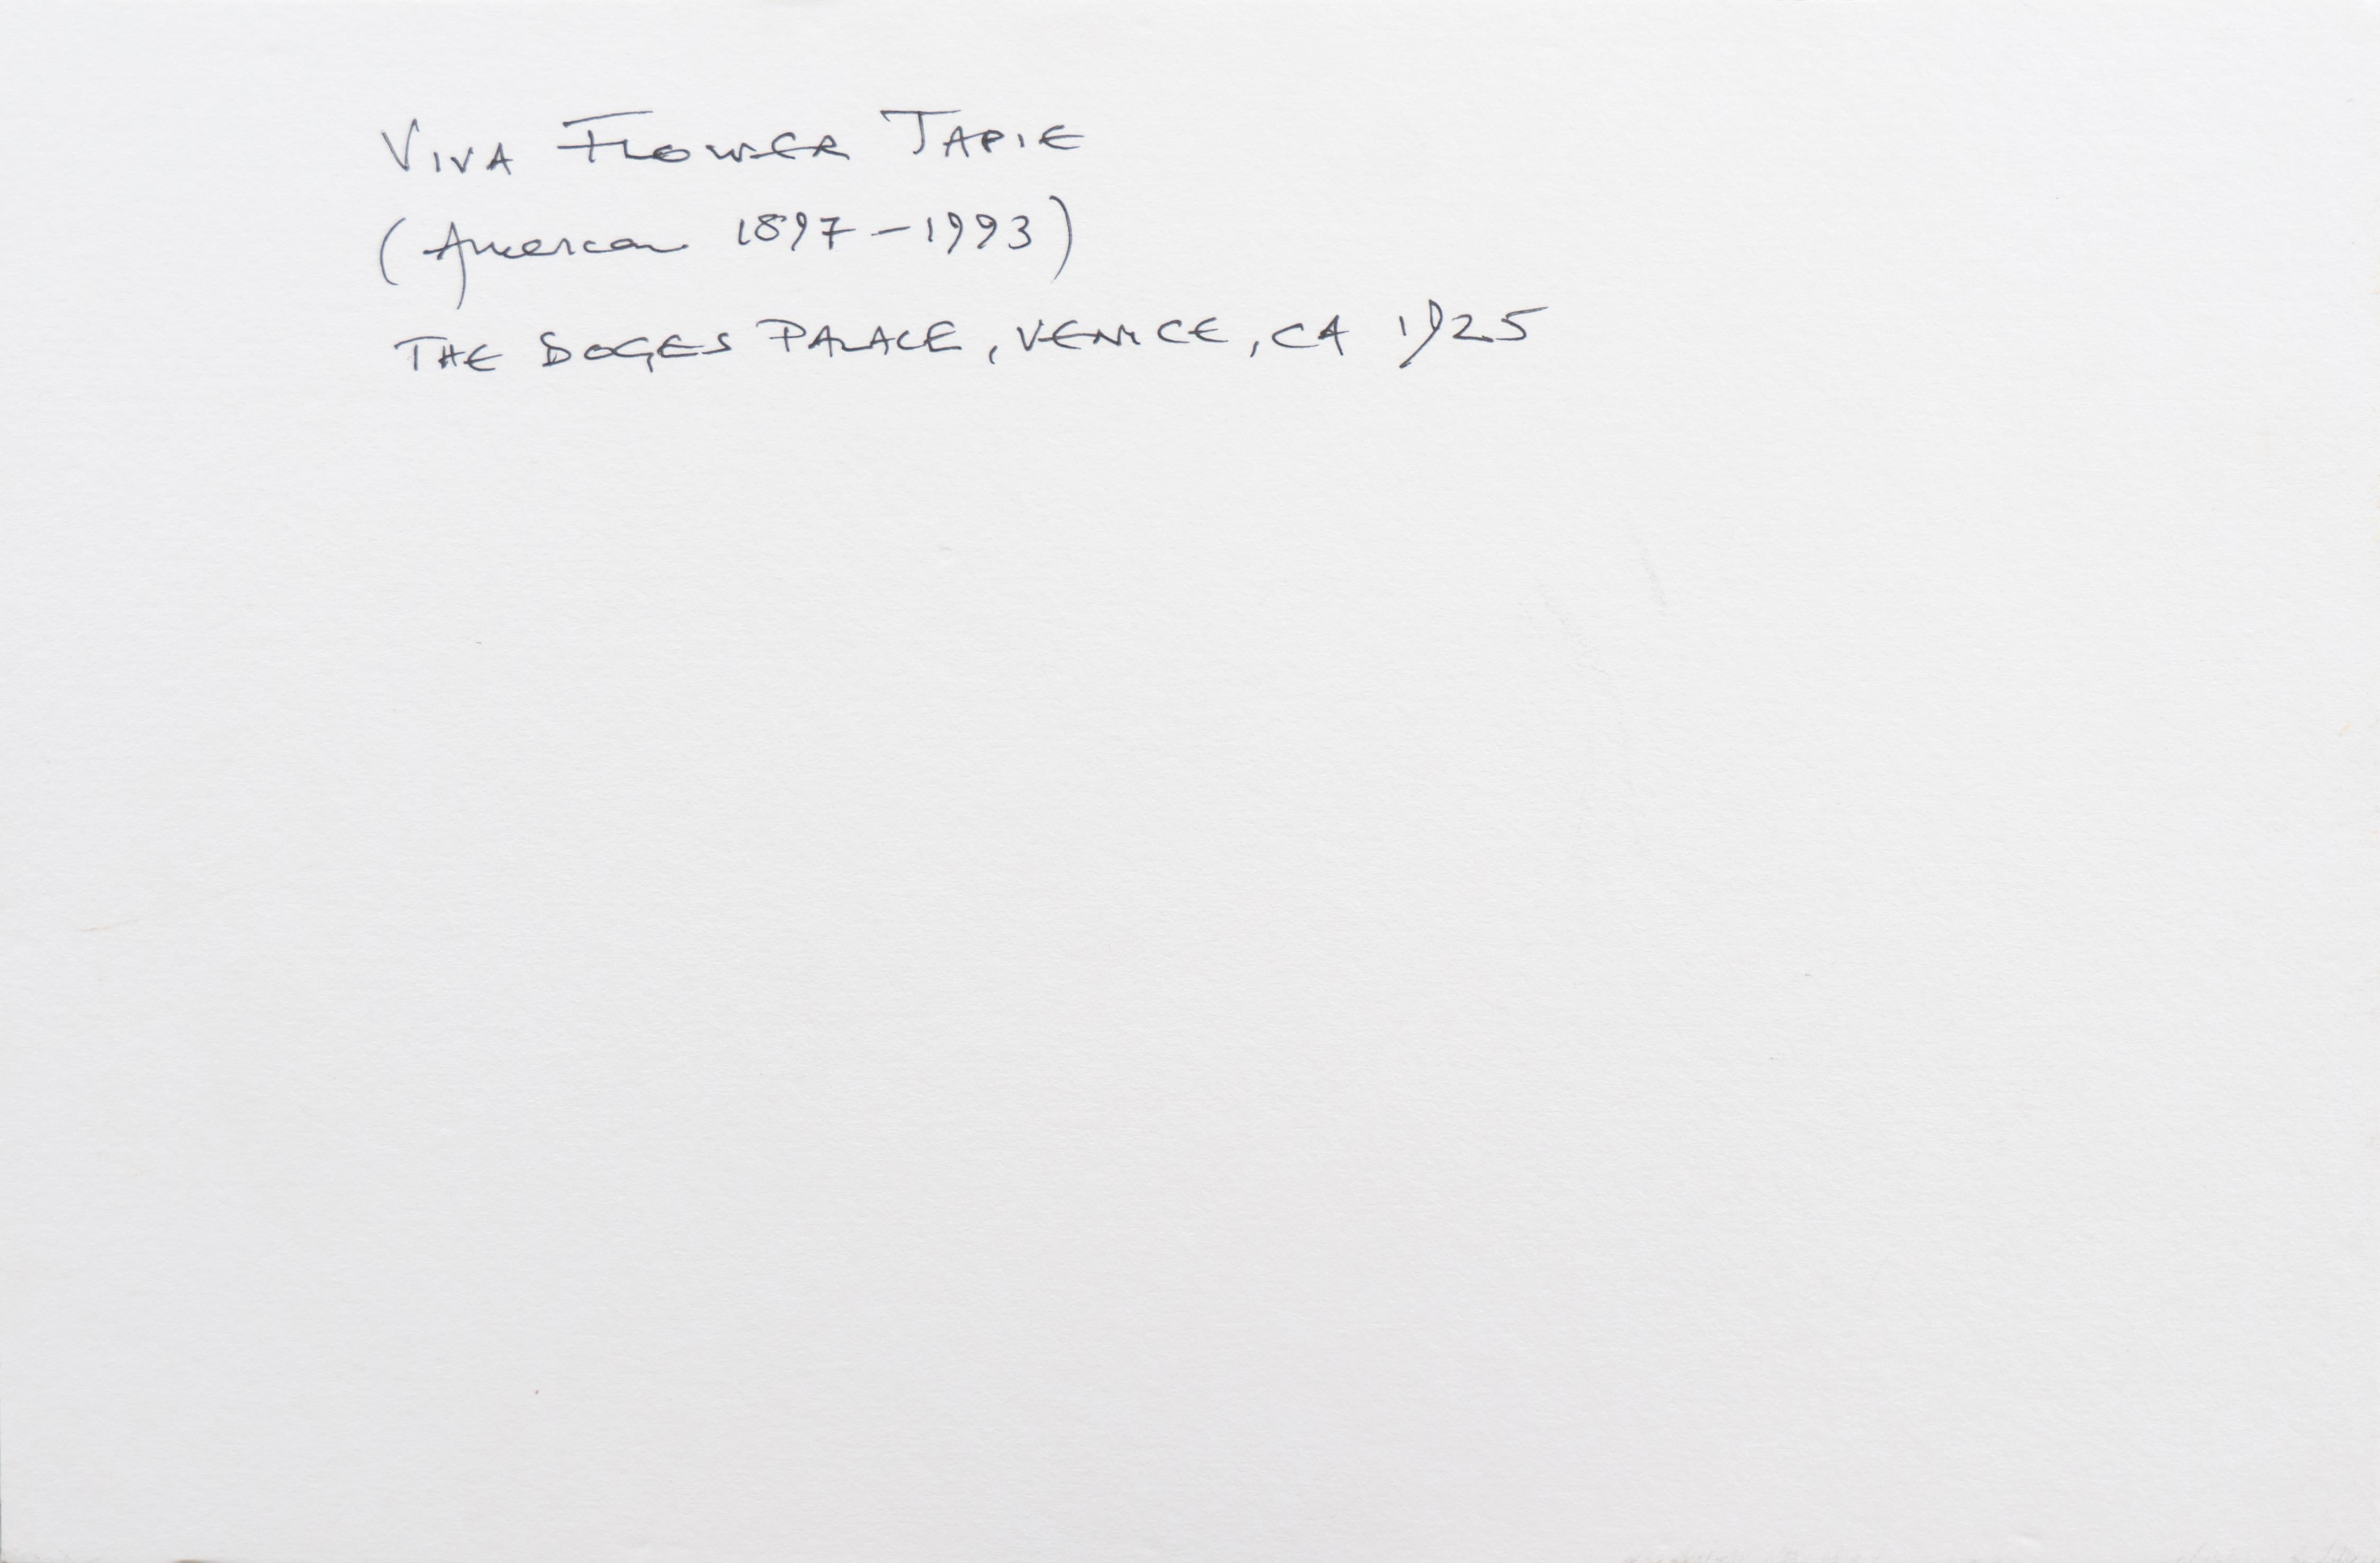 VIVA FLOWER TAPIE
(American 1897-1993)
THE DOGES PALACE, VENICE, CA 1925